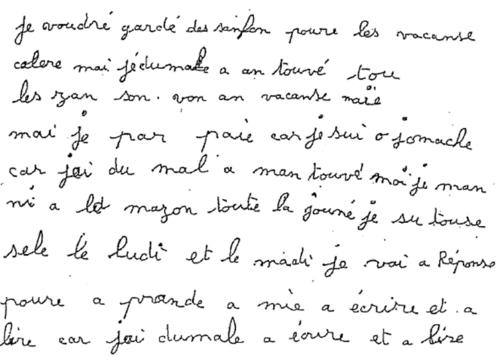 je voudré gardé des sanfon poure les vacanse
calere mai jédumale a an touvé tou
les zan son. von an vacanse maïé
mai je par paié car je sui o jomache
car jai du mal a man touvé mai je man
ni a la mazon toute la jouné je su touse
sele le ludi et le madi je vai a Réponse
poure a prande a mie a écrire et a
lire car jai dumale a écrire et a lire